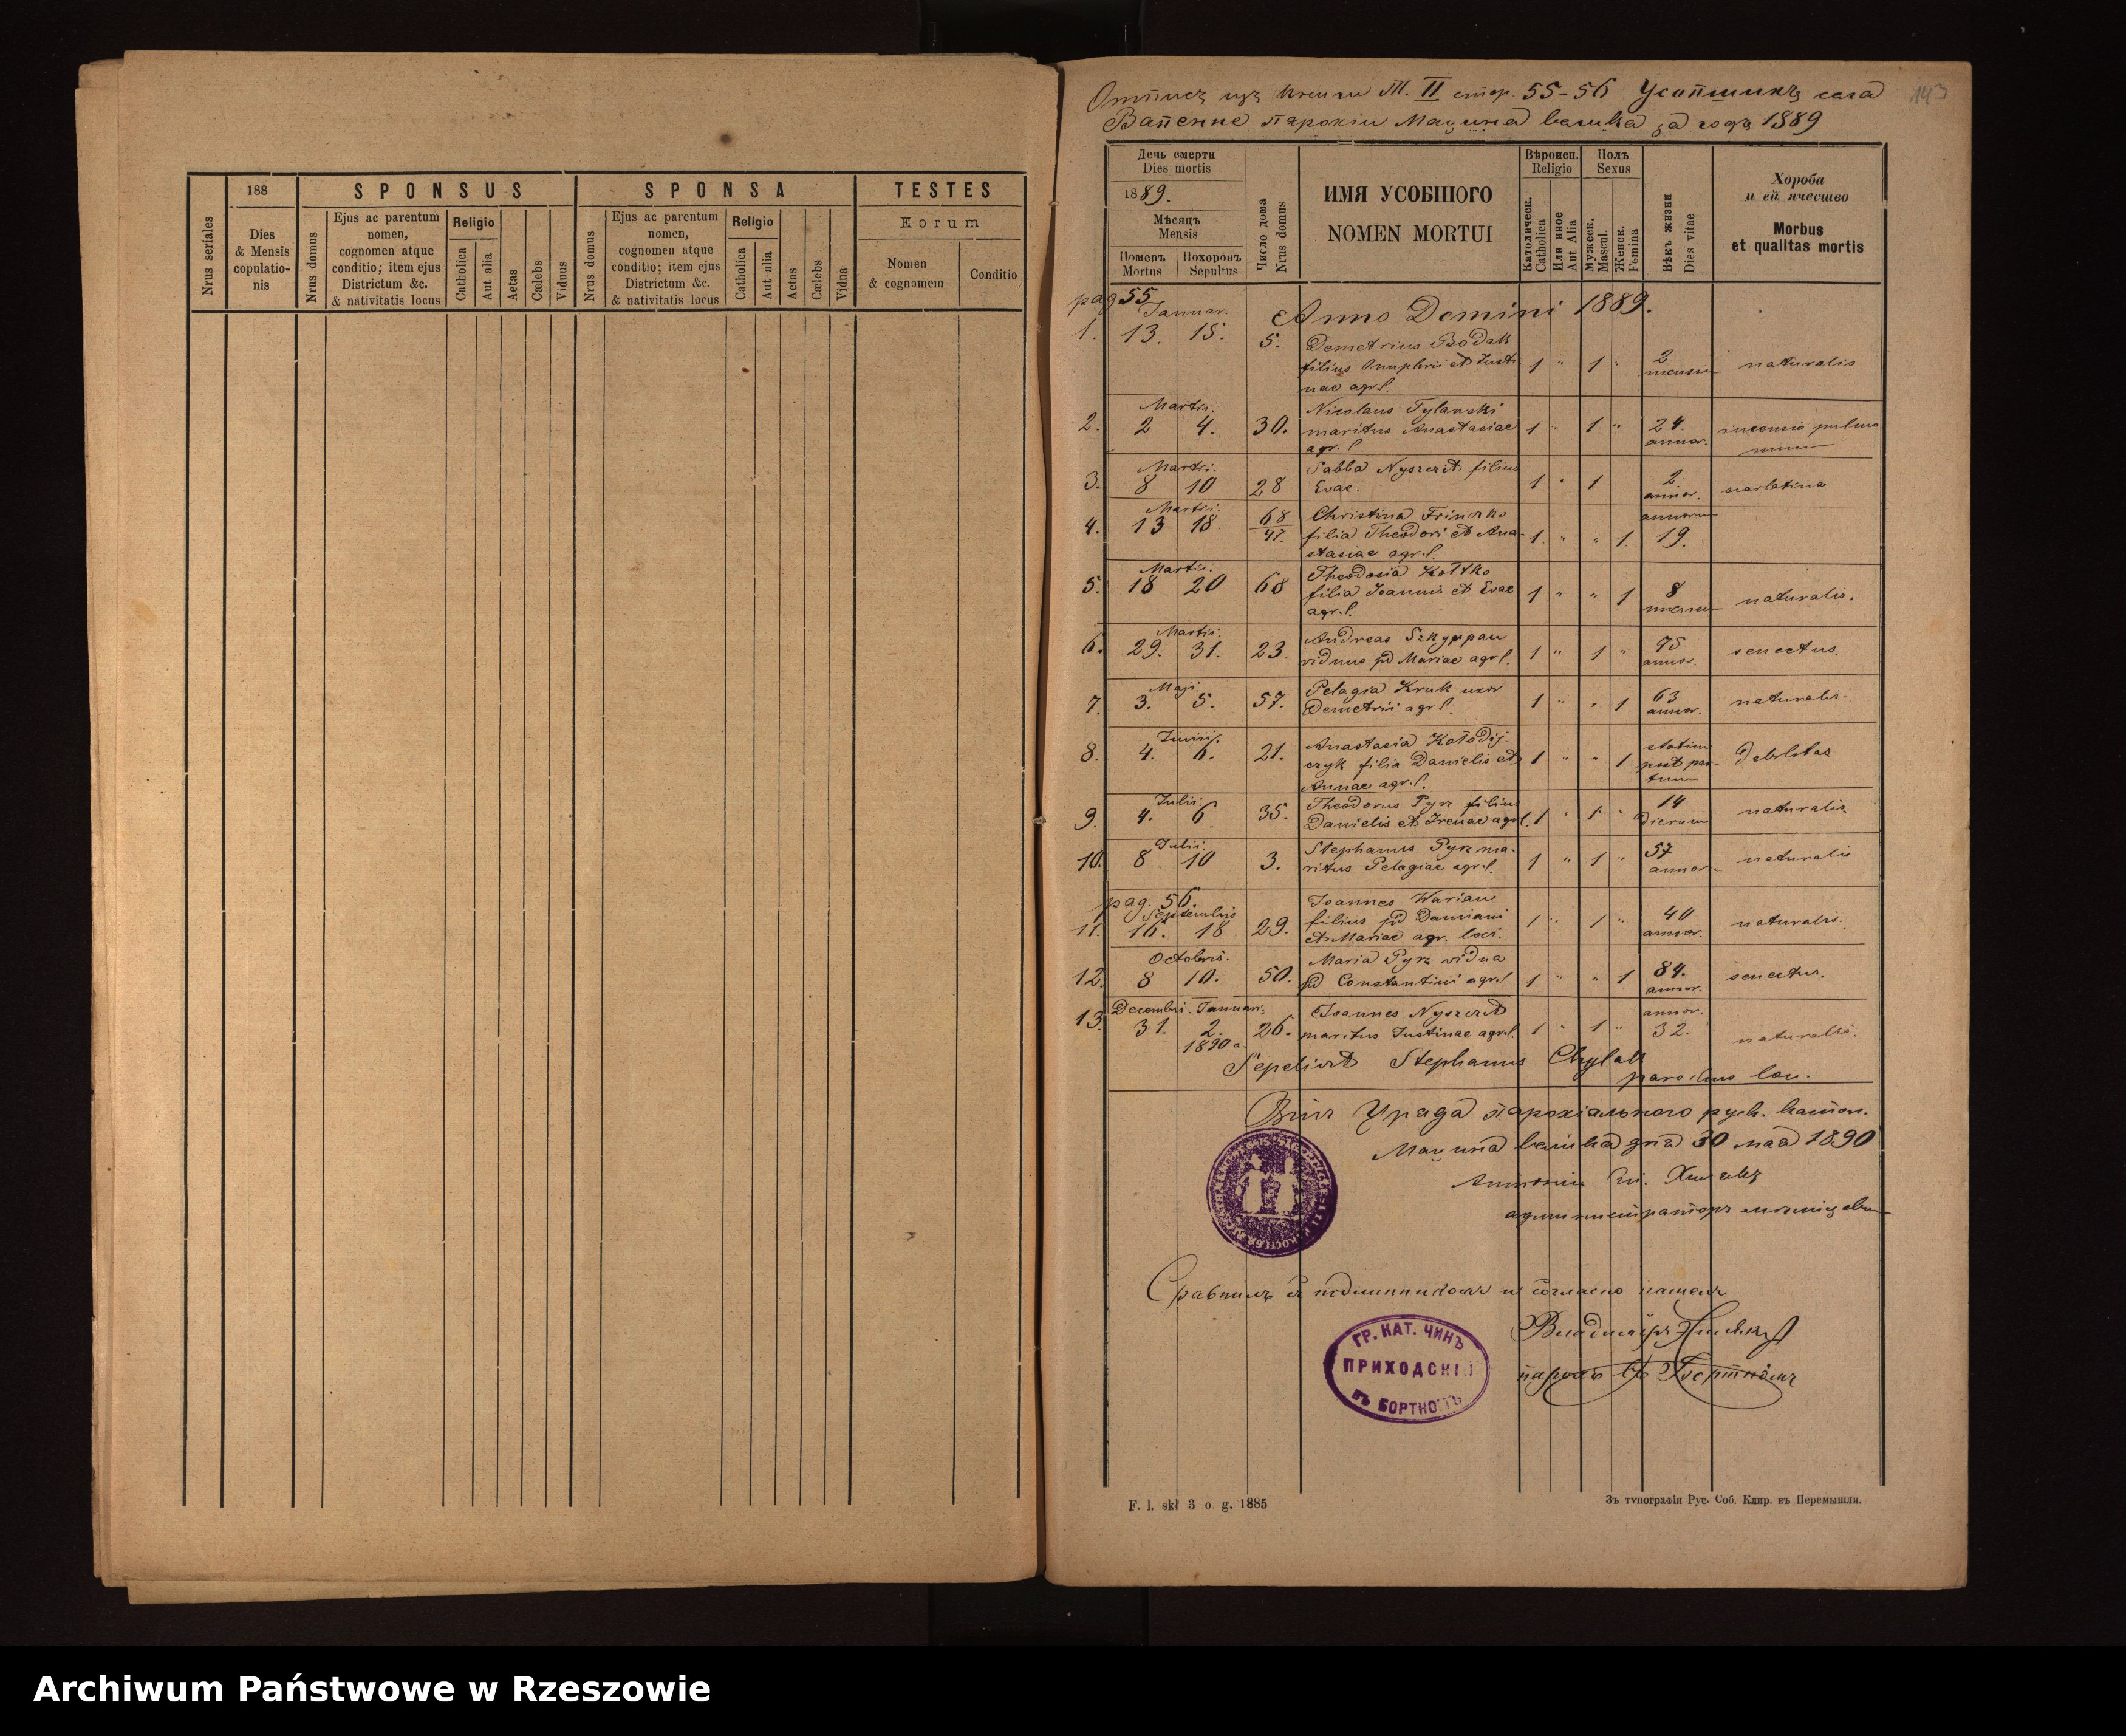 188
SPONSUS
SPONSA
TESTES
Nrus seriales
Dies
& Mensis
copulatio-
nis
Nrus domus
Ejus ac parentum
nomen,
cognomen atque
conditio; item ejus
Districtum &c.
& nativitatis locus
Religio
Catholica
Aut alia
Aetas
Cælebs
Vidnus
Nrus domus
Ejus ac parentum
nomen,
cognomen atque
conditio; item ejus
Districtum &c.
& nativitatis locus
Religio
Catholica
Aut alia
Aetas
Cælebs
Vidua
Eorum
Nomen
& cognomem
Conditio
143
Отписъ изъ книги Т. II стор. 55-56 Усопшихъ села
Вапенне парохіи Мацина велика за годъ 1889
День смерти
Dies mortis
1889.
Мѣсяцъ
Mensis
Померъ
Mortus
Похоронъ
Sepultus
Число дома
Nrus domus
ИМЯ УСОБШОГО
NOMEN MORTUI
Вѣроисп.
Religio
Католическ.
Catholica
Или иное
Aut Alia
Полъ
Sexus
Мужеск.
Mascul.
Женск.
Fémina
Вѣкъ жизни
Dies vitae
Хороба
и ей ячество
Morbus
et qualitas mortis
pag 55
Januar.
Anno Domini 1889.
1. 13. 15. 5. Demetrius Bodak
filius Onuphrii et Justi-
nae agr.l. 1 " 1 " 2 mensiu naturalis
Martii.
2. 2 4. 30. Nicolaus Tylawski
maritus Anastasiae
agr. l. 1 " 1 " 24. annor. pulmo
num
Martii.
3. 8 10 28 Sabba Nyszczet filius
Evae. 1 " 1 2 annor. scarlatina
Martii.
4. 13 18. 68/47. Christina Frinczko
filia Theodori et Ana-
stasiae agr.l. 1. " " 1. annorum 19.
Martii.
5. 18 20 68 Theodosia Kottko
filia Joannis et Evae
agr.l. 1 " " 1 8 mensiu naturalis.
Martii.
6. 29. 31. 23. Andreas Szkyrpan
viduus pd Mariae agr l. 1 " 1 " 75 annor. senectus.
Maji.
7. 3. 5. 57. Pelagia Kruk uxor
Demetrii agr l. 1 " " 1 63 annor. naturalis.
Junii.
8. 4. 6. 21. Anastasia Kołodij-
czyk filia Danielis et
Annae agr.l. 1 " " 1 statim
post par-
tum debilitas
Julii.
9. 4. 6 35. Theodorus Pyrz filius
Danielis et Irenae agr l. 1 " 1. " 14 dierum naturalis
Julii.
10. 8 10 3. Stephanus Pyrz ma-
ritus Pelagiae agr.l. 1 " 1 " 57 annor. naturalis
pag. 56.
Septembris
11. 16. 18 29. Joannes Warian
filius pd Damiani
et Mariae agr. loci. 1 " 1 " 40 annor. naturalis.
Octobris.
12. 8 10. 50. Maria Pyrz vidua
pd Constantini agr.l 1 " " 1 84. annor. senectus.
Decembri. Januarii
13. 31. 2. 1890 a. 26. Joannes Nyszczet
maritus Justinae agr.l. 1 " 1 " annor. 32. naturalis.
Sepelivit Stephanus Chylak
parochus loc.
Уряда парохіального руск. катол.
Мацина велика дня 30 мая 1890
администраторъ
Сравнилъ съ подлинникомъ и согласно нашелъ
Владиміръ
ГР. КАТ. ЧИНЪ
ПРИХОДСКІЙ
ВЪ БОРТНОМЪ
F. l. skł 3 o. g. 1885
Зъ типографіи Рус. Соб. Клир. въ Перемышли.
Archiwum Państwowe w Rzeszowie